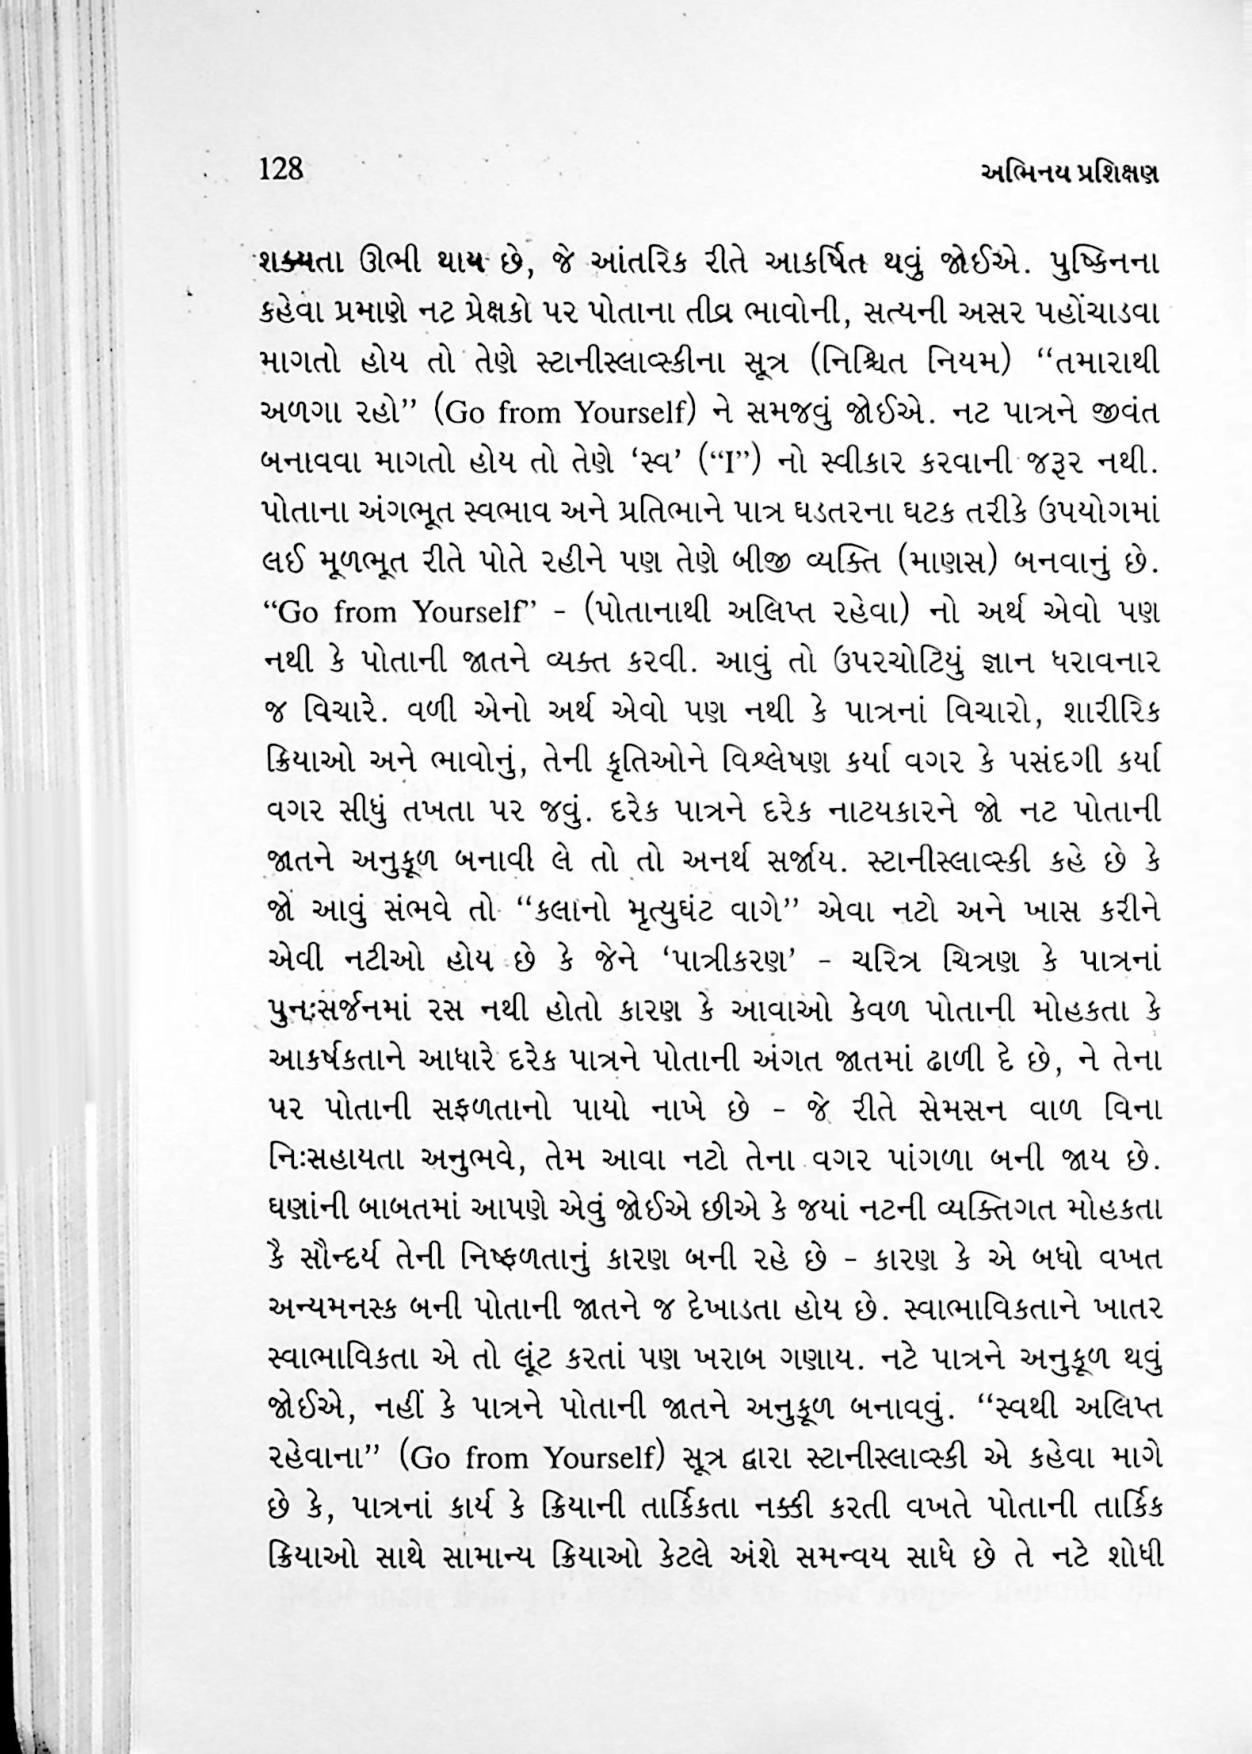 128
અભિનય પ્રશિક્ષણ
શક્યતા ઊભી થાય છે, જે આંતરિક રીતે આકર્ષિત થવું જોઈએ. પુષ્કિનના
કહેવા પ્રમાણે નટ પ્રેક્ષકો પર પોતાના તીવ્ર ભાવોની, સત્યની અસર પહોંચાડવા
માગતો હોય તો તેણે સ્ટાનીસ્લાવ્સ્કીના સૂત્ર (નિશ્ચિત નિયમ) “તમારાથી
અળગા રહો” (Go from Yourself) ને સમજવું જોઈએ. નટ પાત્રને જીવંત
બનાવવા માગતો હોય તો તેણે ‘સ્વ’ (“I”) નો સ્વીકાર કરવાની જરૂર નથી.
પોતાના અંગભૂત સ્વભાવ અને પ્રતિભાને પાત્ર ઘડતરના ઘટક તરીકે ઉપયોગમાં
લઈ મૂળભૂત રીતે પોતે રહીને પણ તેણે બીજી વ્યક્તિ (માણસ) બનવાનું છે.
“Go from Yourself” - (પોતાનાથી અલિપ્ત રહેવા) નો અર્થ એવો પણ
નથી કે પોતાની જાતને વ્યક્ત કરવી. આવું તો ઉપરચોટિયું જ્ઞાન ધરાવનાર
જ વિચારે. વળી એનો અર્થ એવો પણ નથી કે પાત્રનાં વિચારો, શારીરિક
ક્રિયાઓ અને ભાવોનું, તેની કૃતિઓને વિશ્લેષણ કર્યા વગર કે પસંદગી કર્યા
વગર સીધું તખતા પર જવું. દરેક પાત્રને દરેક નાટયકારને જો નટ પોતાની
જાતને અનુકૂળ બનાવી લે તો તો અનર્થ સર્જાય. સ્ટાનીસ્લાવ્સ્કી કહે છે કે
જો આવું સંભવે તો “કલાનો મૃત્યુઘંટ વાગે” એવા નટો અને ખાસ કરીને
એવી નટીઓ હોય છે કે જેને ‘પાત્રીકરણ’ - ચરિત્ર ચિત્રણ કે પાત્રનાં
પુનઃસર્જનમાં રસ નથી હોતો કારણ કે આવાઓ કેવળ પોતાની મોહકતા કે
આકર્ષકતાને આધારે દરેક પાત્રને પોતાની અંગત જાતમાં ઢાળી દે છે, ને તેના
પર પોતાની સફળતાનો પાયો નાખે છે - જે રીતે સેમસન વાળ વિના
નિઃસહાયતા અનુભવે, તેમ આવા નટો તેના વગર પાંગળા બની જાય છે.
ઘણાંની બાબતમાં આપણે એવું જોઈએ છીએ કે જયાં નટની વ્યક્તિગત મોહકતા
કૈ સૌન્દર્ય તેની નિષ્ફળતાનું કારણ બની રહે છે - કારણ કે એ બધો વખત
અન્યમનસ્ક બની પોતાની જાતને જ દેખાડતા હોય છે. સ્વાભાવિકતાને ખાતર
સ્વાભાવિકતા એ તો લૂંટ કરતાં પણ ખરાબ ગણાય. નટે પાત્રને અનુકૂળ થવું
જોઈએ, નહીં કે પાત્રને પોતાની જાતને અનુકૂળ બનાવવું. “સ્વથી અલિપ્ત
રહેવાના” (Go from Yourself) સૂત્ર દ્વારા સ્ટાનીસ્લાવ્સ્કી એ કહેવા માગે
છે કે, પાત્રનાં કાર્ય કે ક્રિયાની તાર્કિકતા નક્કી કરતી વખતે પોતાની તાર્કિક
ક્રિયાઓ સાથે સામાન્ય ક્રિયાઓ કેટલે અંશે સમન્વય સાધે છે તે નટે શોધી